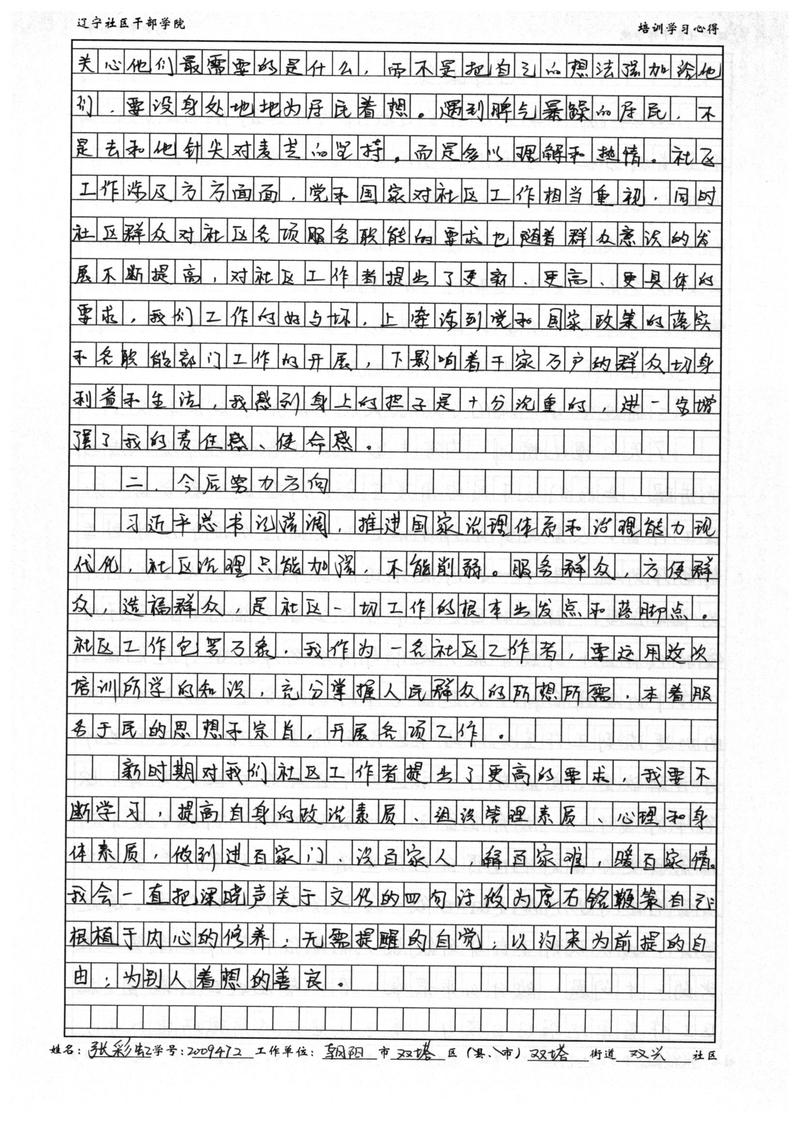 辽宁社区干部学院
培训学习心得
关心他们最需要的是什么，而不是把自己的想法强加给他
们，要设身处地地为居民着想。遇到脾气暴躁的居民，不
是去和他针尖对麦芒的坚持。而是多以理解和热情。社区
工作涉及方方面面，党和国家对社区工作相当重视，同时
社区群众对社区各项服务职能的要求也随着群众意识的发
展不断提高，对社区工作者提出了更新、更高、更具体的
要求，我们工作的好与坏，上牵涉到党和国家政策的落实
和各职能部门工作的开展，下影响着千家万户的群众切身
利益和生活，我感到身上的担子是十分沉重的，进一步增
强了我的责任感、使命感。
二、今后努力方向
习近平总书记强调，推进国家治理体系和治理能力现
代化，社区治理只能加强，不能削弱。服务群众，方便群
众，造福群众，是社区一切工作的根本出发点和落脚点。
社区工作包罗万象，我作为一名社区工作者，要运用这次
培训所学的知识，充分掌握人民群众的所想所需，本着服
务于民的思想于宗旨，开展各项工作。
新时期对我们社区工作者提出了更高的要求，我要不
断学习，提高自身的政治素质、组织管理素质、心理和身
体素质，做到进百家门、识百家人，解百家难，暖百家情。
我会一直把梁晓声关于文化的四句话做为座右铭鞭策自己
根植于内心的修养；无需提醒的自觉；以约束为前提的自
由；为别人着想的善良。
姓名：张彩虹 学号：2009472 工作单位：朝阳 市 双塔 区（县、市）双塔 街道 双兴 社区